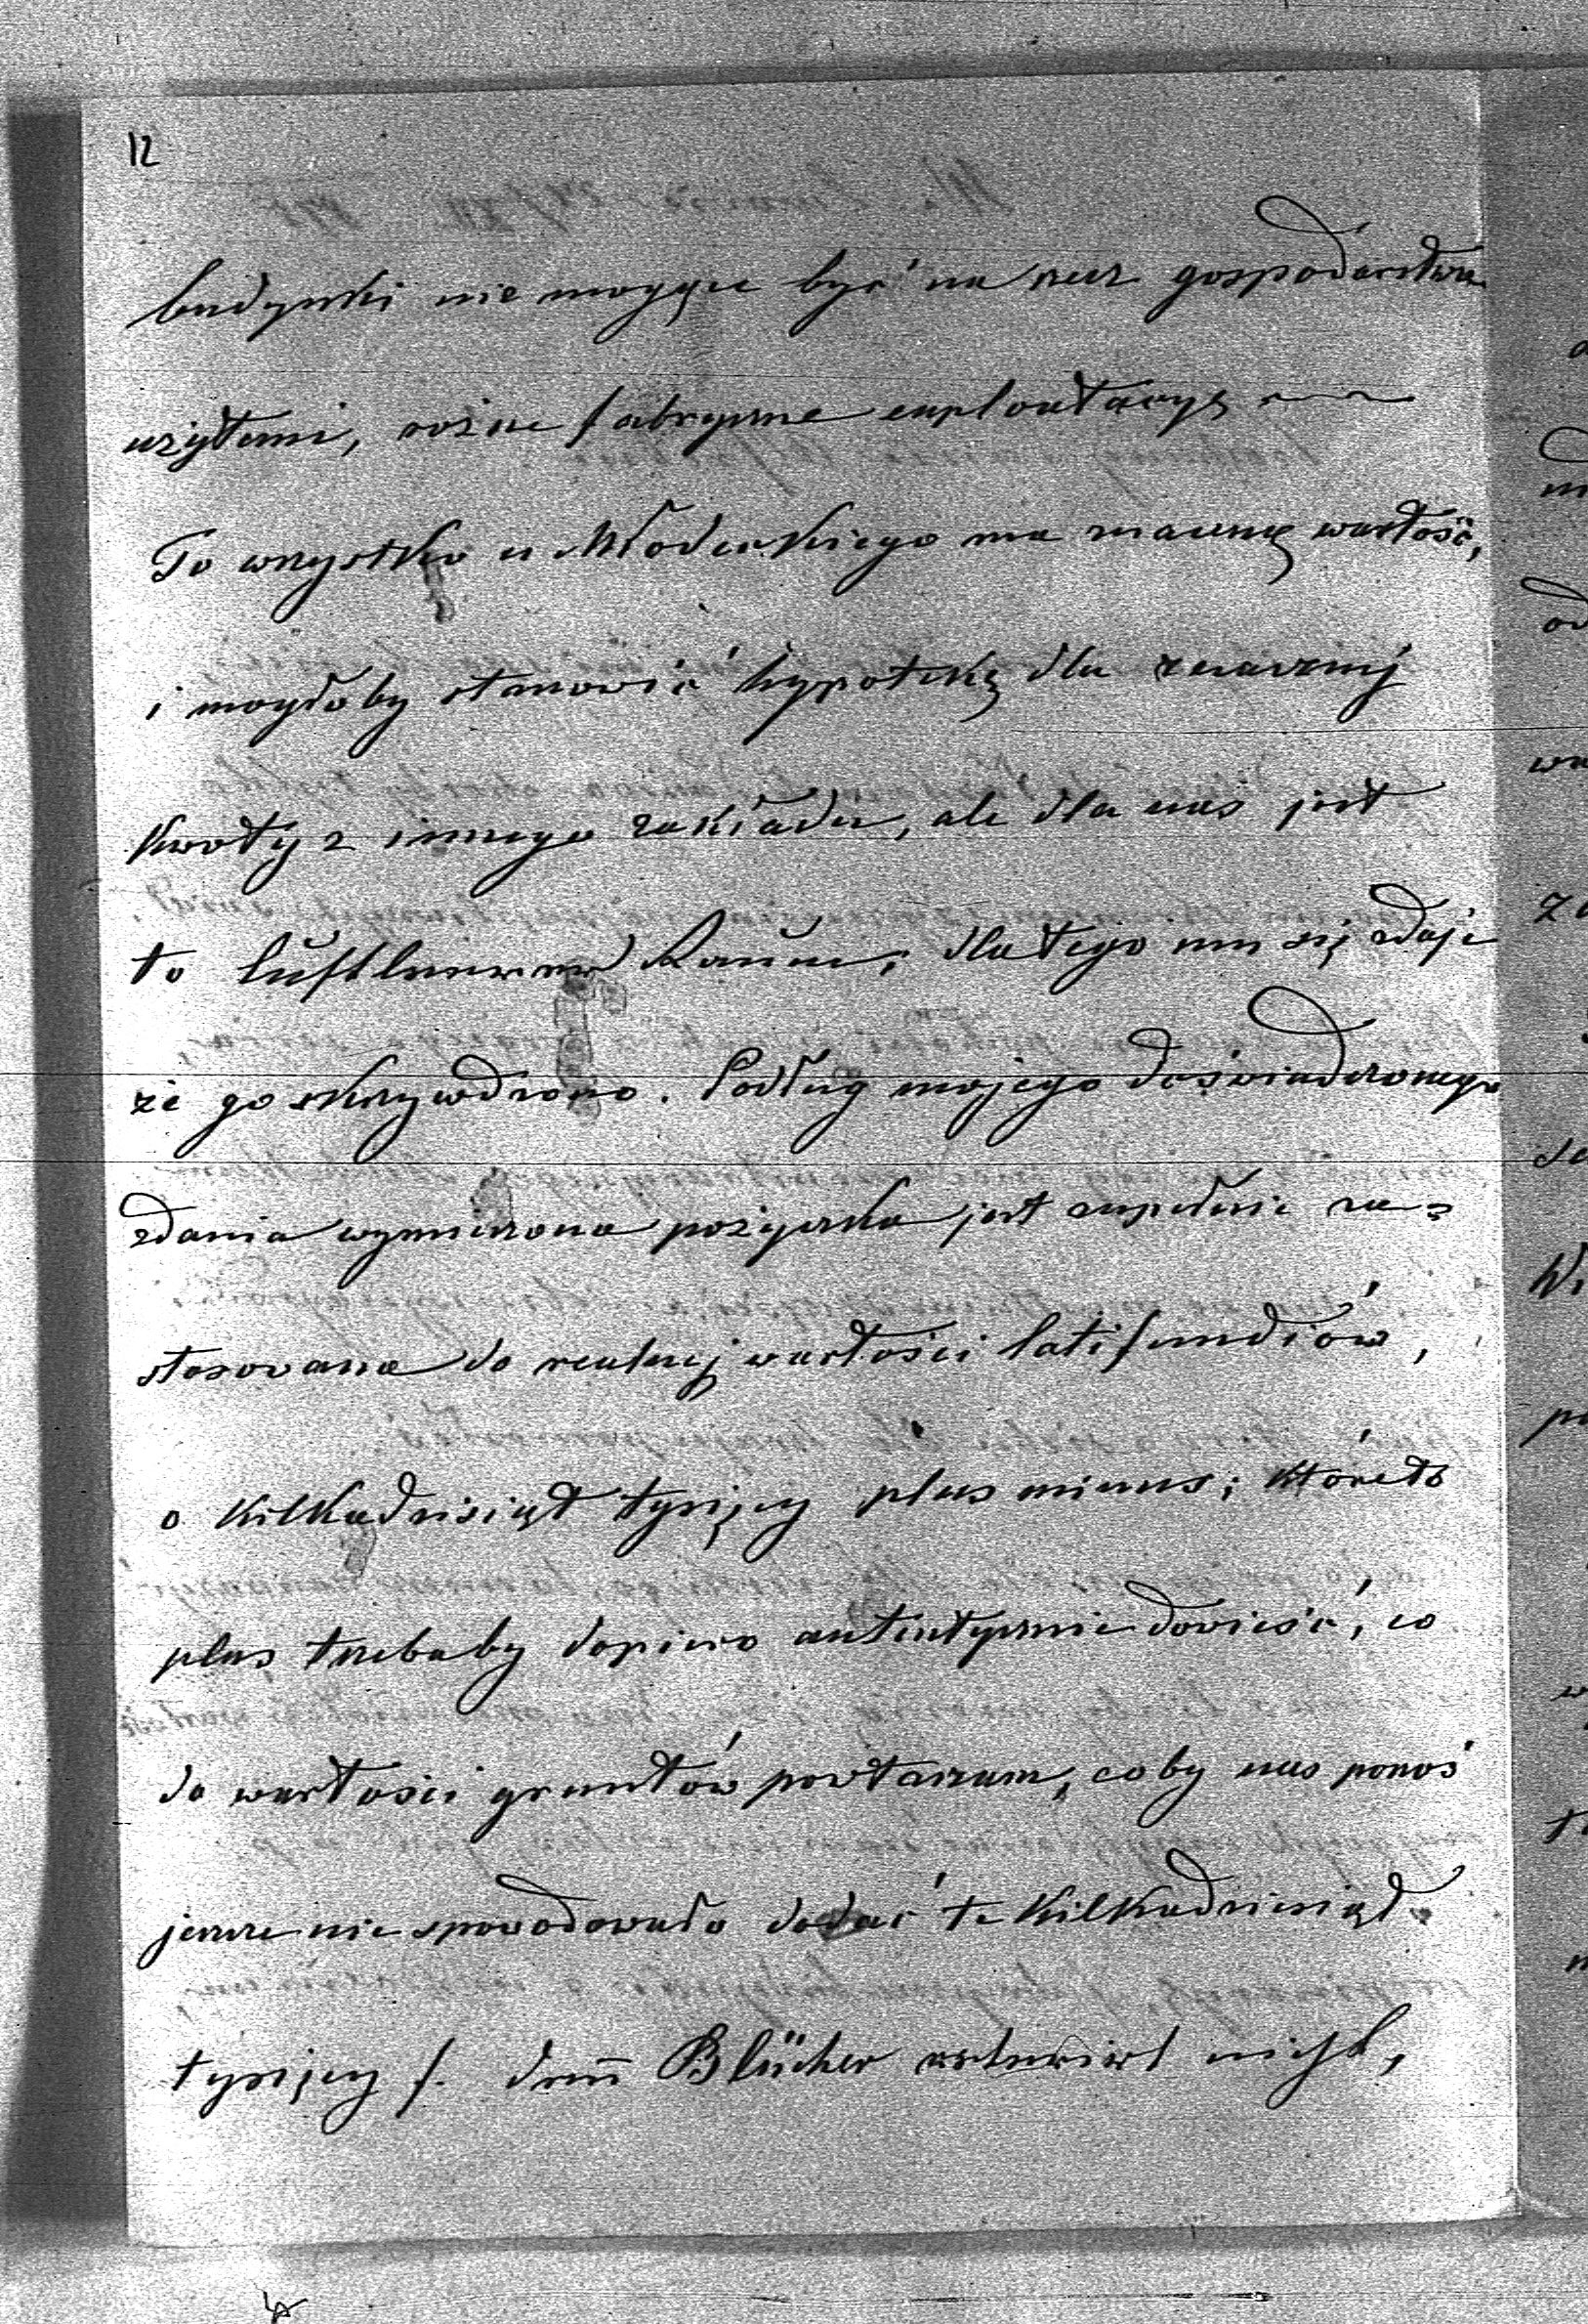 12
budynki nie mogące być na rzecz gospodarstwa
użytemi, różne fabryczne exploatacye
To wszystko u Młodeckiego ma znaczną wartość,
i mogłoby stanowić hypotekę dla znacznej
kwoty z innego zakładu, ale dla nas jest
to luftleerer Raum; dla tego mu się zdaje
że go skrzywdzono. Podług mojego doświadczonego
zdania wymierzona pożyczka jest zupełnie za=
stosowana do realnej wartości latifundiów,
o kilkadziesiąt tysięcy plus minus; któreto
plus trzebaby dopiero autentycznie dowieść, co
do wartości gruntów powtarzam, coby nas ponoś
jeszcze nie spowodowało dodać te kilkadziesiąt
tysięcy f. denn Blücher nicht,